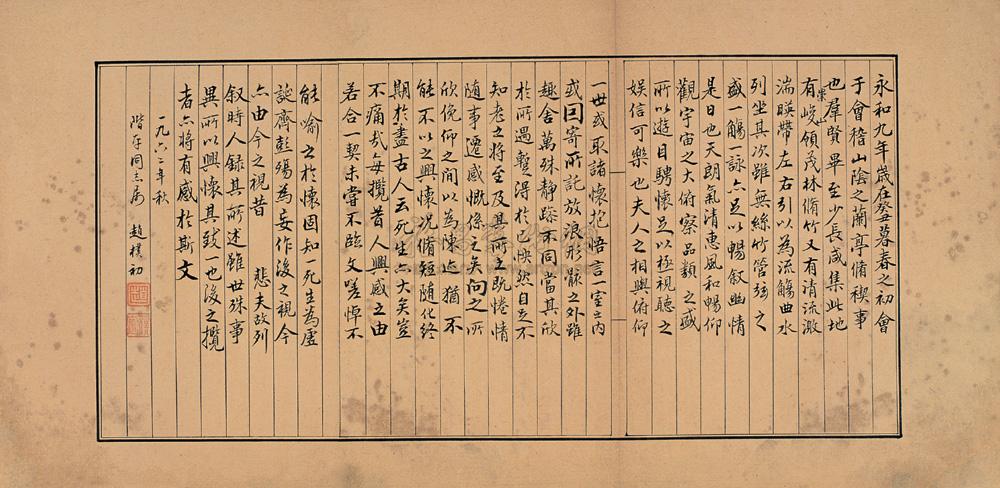 永和九年歲在癸丑暮春之初會
于會稽山陰之蘭亭脩稧事
也羣賢畢至少長咸集此地
有崇山峻領茂林脩竹又有清流激
湍暎帶左右引以為流觴曲水
列坐其次雖無絲竹管弦之
盛一觴一詠亦足以暢叙幽情
是日也天朗氣清惠風和暢仰
觀宇宙之大俯察品類之盛
所以遊目騁懷足以極視聽之
娛信可樂也夫人之相與俯仰
一世或取諸懷抱悟言一室之內
或因寄所託放浪形骸之外雖
趣舍萬殊靜躁不同當其欣
於所遇蹔得於己怏然自足不
知老之將至及其所之既惓情
隨事遷感慨係之矣向之所
欣俛仰之間以為陳迹猶不
能不以之興懷况脩短隨化終
期於盡古人云死生亦大矣豈
不痛哉每攬昔人興感之由
若合一契未嘗不臨文嗟悼不
能喻之於懷固知一死生為虛
誕齊彭殤為妄作後之視今
亦由今之視昔 悲夫故列
叙時人錄其所述雖世殊事
異所以興懷其致一也後之攬
者亦將有感於斯文
一九六二年秋
階平同志屬 趙樸初